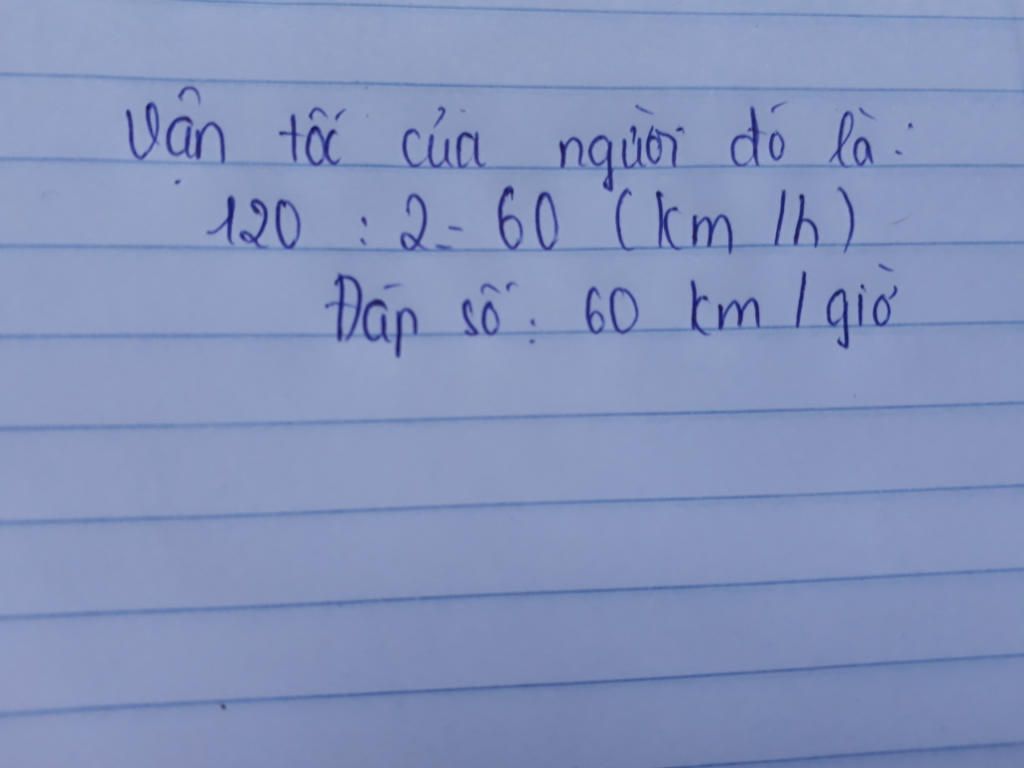 Vận tốc của người đó là:
120 : 2 = 60 (km/h)
Đáp số: 60 km/giờ